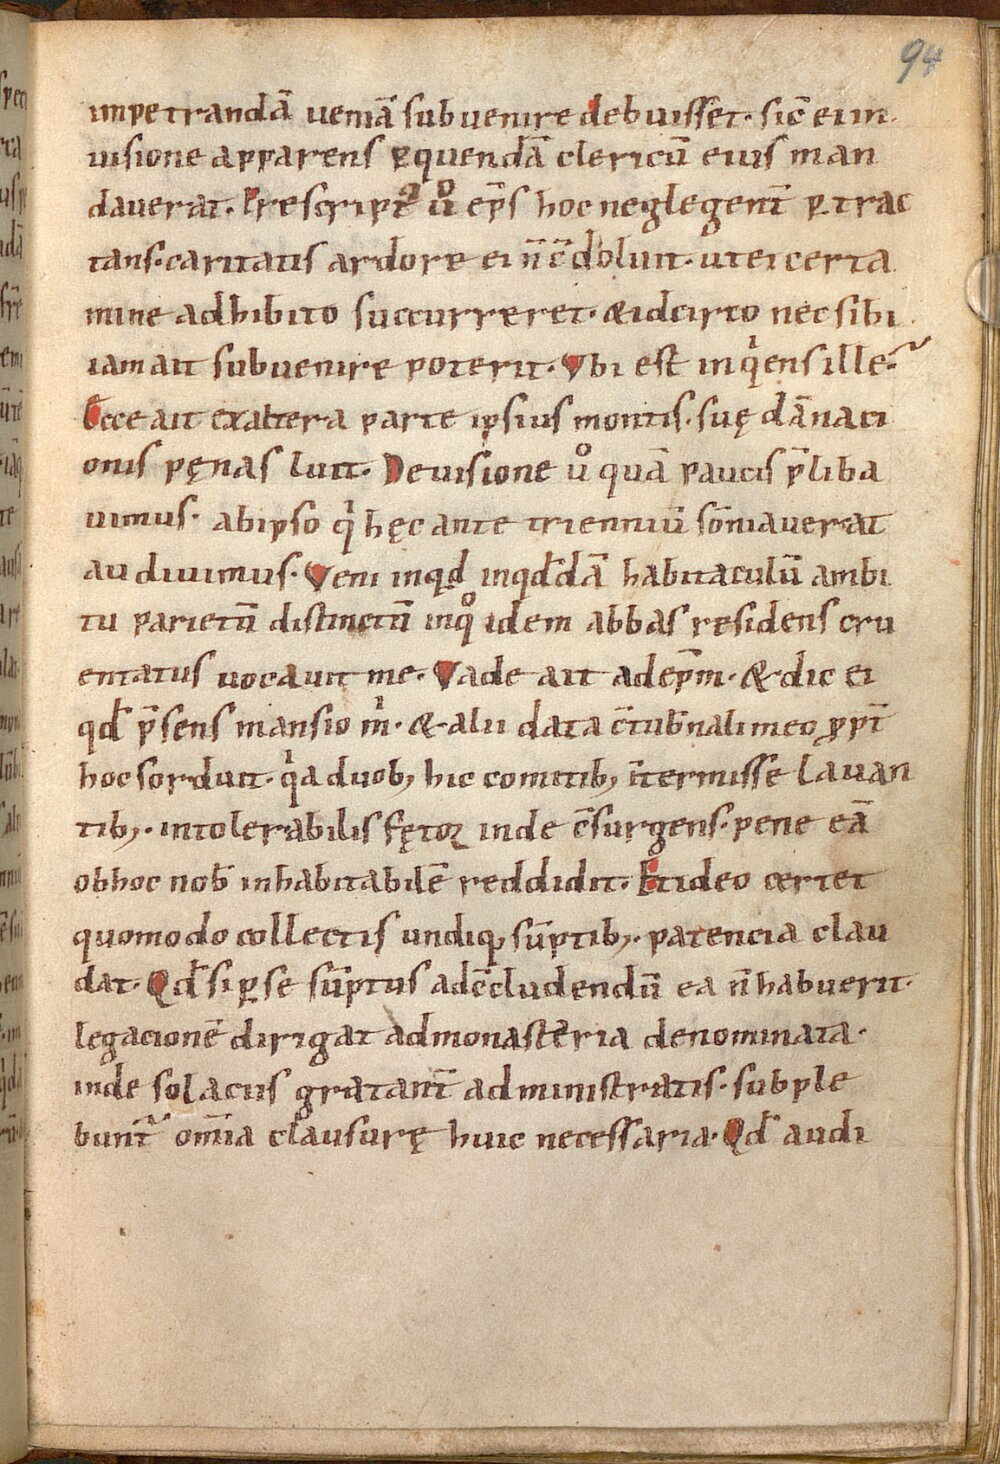 94
impetrandā ueniā subuenire debuisset· sic̄ ei in
uisione apparens ꝑ quendā clericū eius man
dauerat· Prescriptꝰ ů ep̄s hoc neglegent̄ ꝑtrac
tans· caritatis ardore ei n̄ c̄doluit· ut ei certa
mine adhibito succurreret· & idcirco nec sibi
iam ait subuenire poterit· Vbi est inqͥens ille?
Ecce ait ex altera parte ipsius montis· suę dānati
onis pęnas luit· De uisione ů quā paucis p̄liba
uimus· ab ipso qͥ hęc ante trienniū som̄iauerat
audiuimus· Veni inqͥd inqđdā habitaculū ambi
tu parietū distinctū inqͦ idem abbas residens cru
entatus uocauit me· Vade ait ad ep̄m· & dic ei
qđ p̄sens mansio mͥ· & alii data c̄tub̄nali meo ꝓpt̄
hoc sorduit· qͥa duobꝫ hic comitibꝫ īntermisse lauan
tibꝫ· intolerabilis fętoꝝ inde c̄surgens· pene eā
ob hoc nob̄ inhabitabilē reddidit· Et ideo certet
quomodo collectis undiqꝫ sūptibꝫ· patencia clau
dat· Qđ si ꝑ se sūptus ad c̄cludendū ea n̄ habuerit·
legacionē dirigat ad monasteria denominata·
inde solaciis gratant̄ administratis· subple
bunt᷑ om̄ia clausurę huic necessaria· Qđ audi